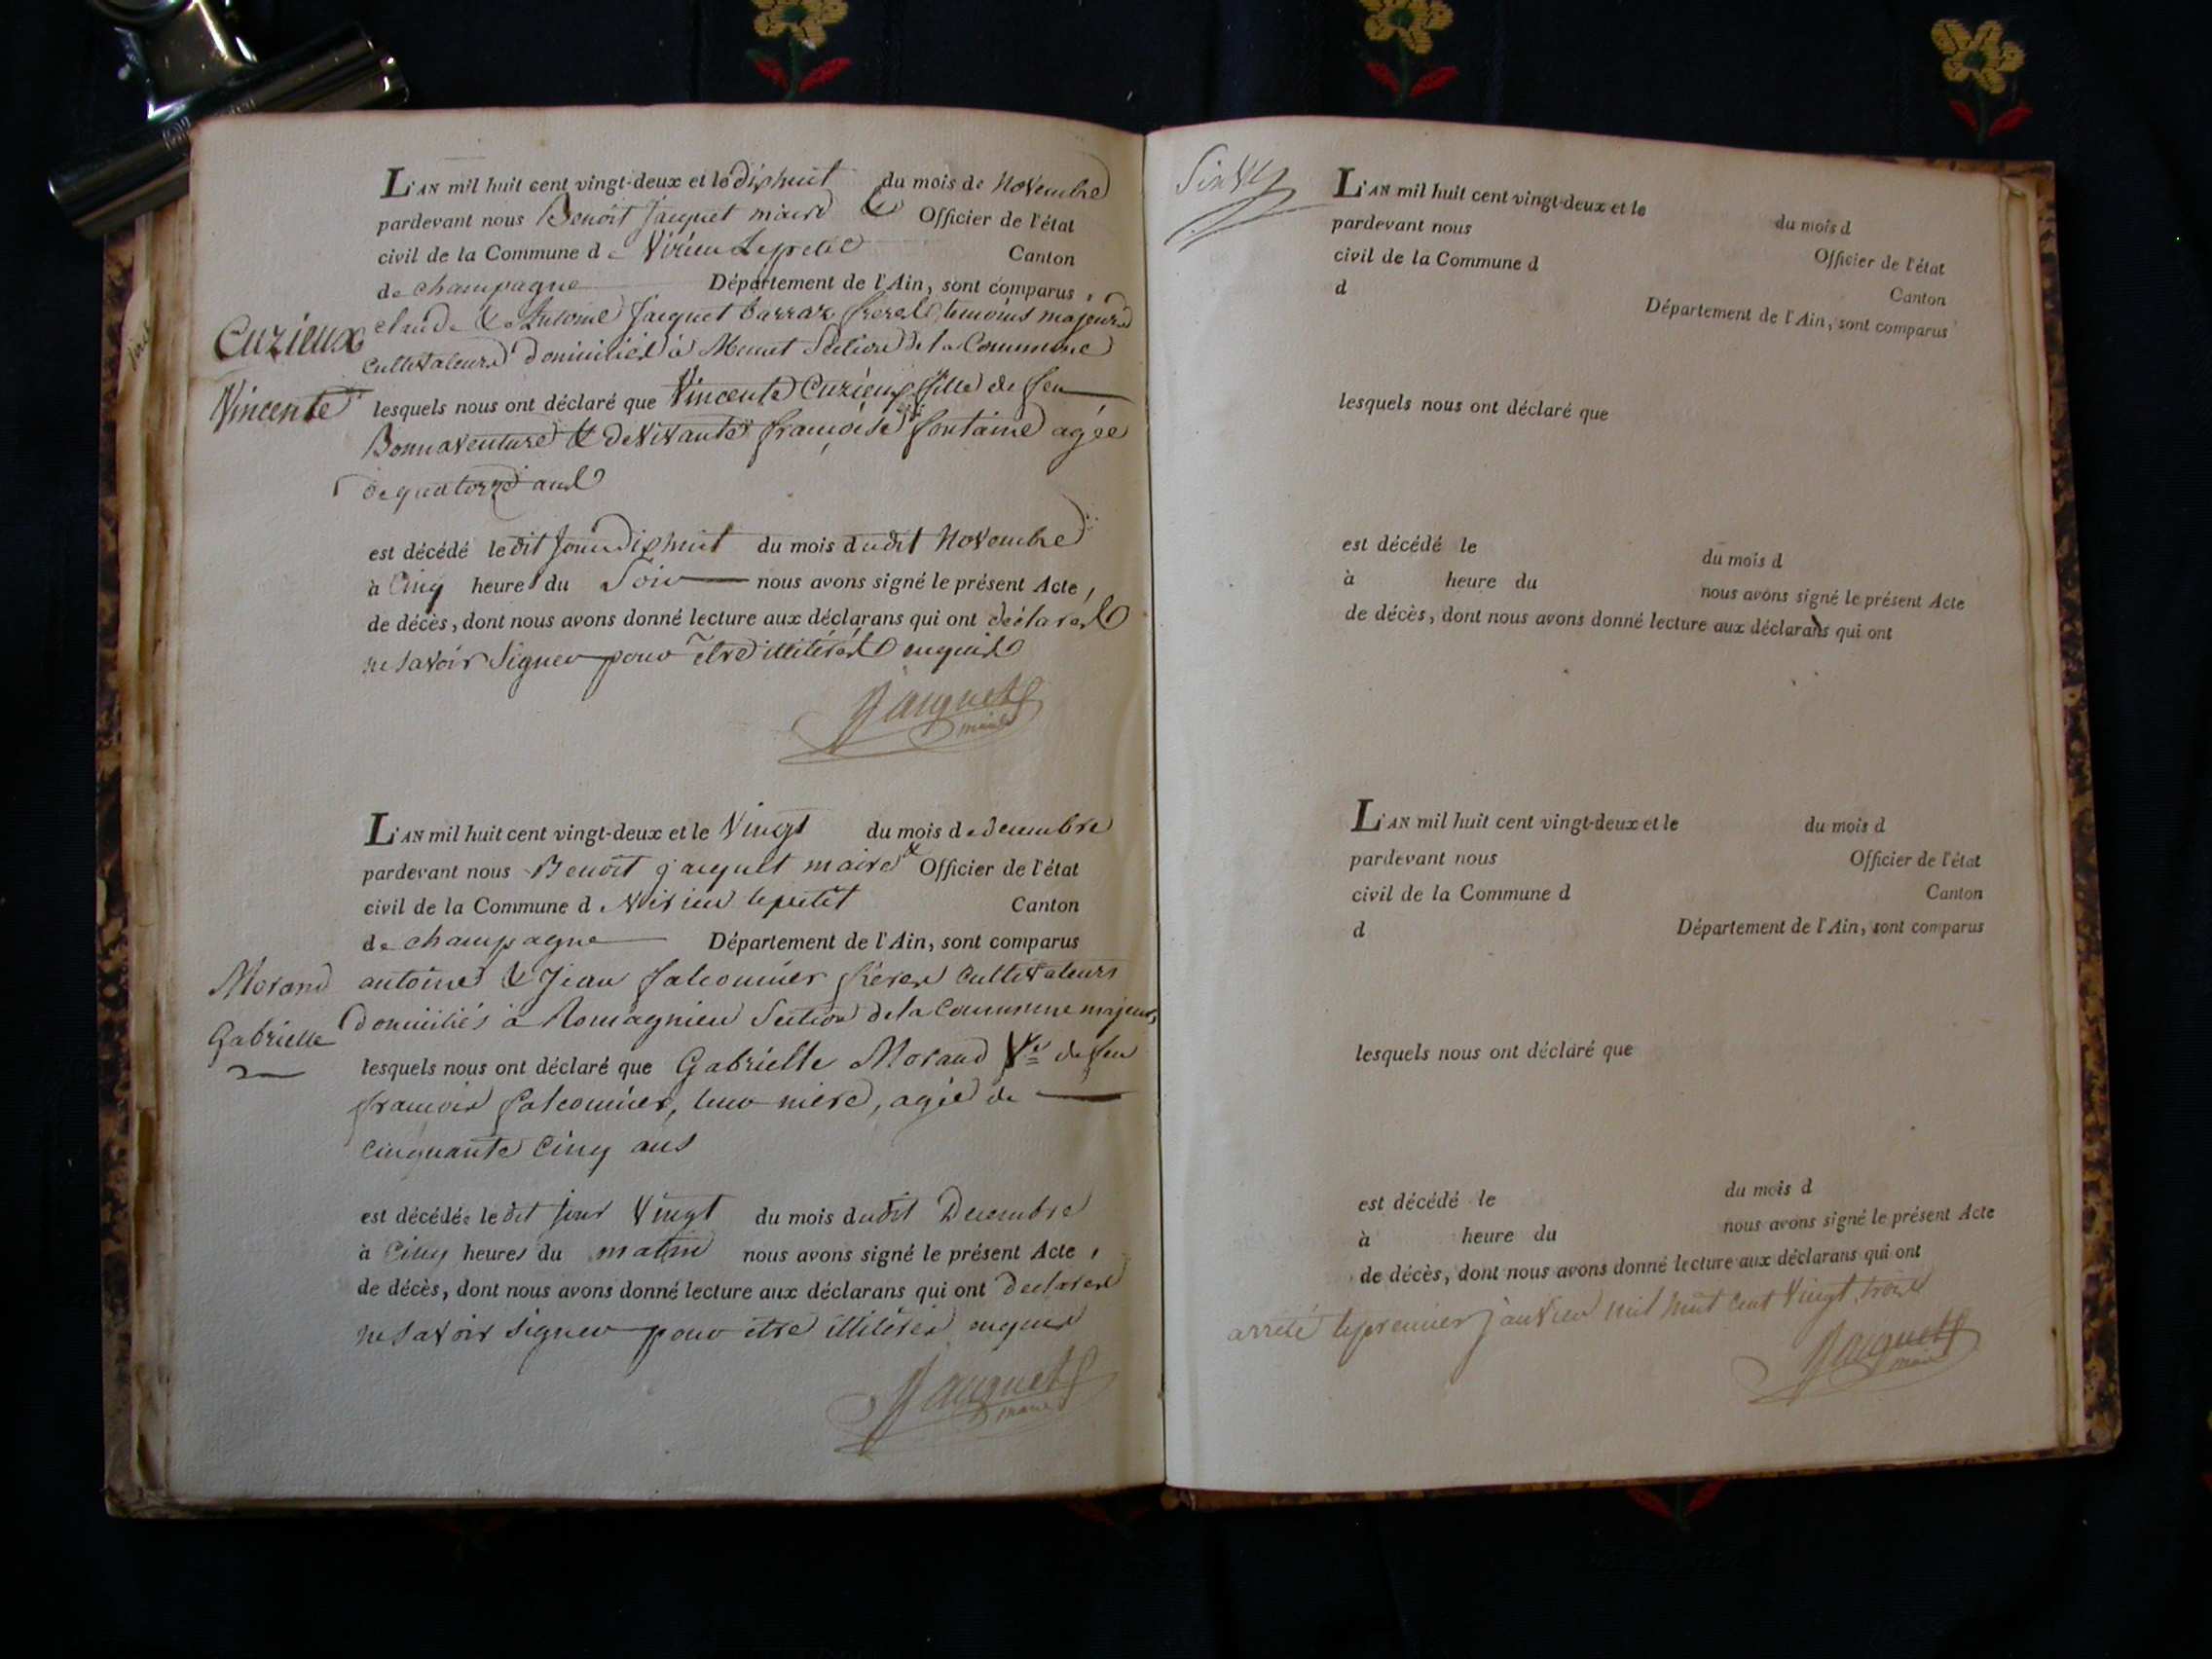 L'AN mil huit cent vingt-deux et le dixhuit du mois de Novembre
pardevant nous Benoît Jacquet maire & Officier de l'état
civil de la Commune de Virieu Le petit Canton
de champagne Département de l'Ain, sont comparus,
claude & Antoine Jacquet barraz freres temoins majeurs
Cuzieux
Cultivateurs domiciliés à Section de la Commune
Vincente
lesquels nous ont déclaré que Vincente Cuzieux fille de feu
Bonnaventure & de vivante françoise fontaine agée
de quatorze ans
est décédé le dit Jour dixhuit du mois dudit Novembre
à Cinq heures du Soir nous avons signé le présent Acte,
de décès, dont nous avons donné lecture aux déclarans qui ont déclarés
ne savoir Signer pour être illitérés enquis
Jacquet
maire
L'AN mil huit cent vingt-deux et le Vingt du mois de decembre
pardevant nous Benoît jacquet maire & Officier de l'état
civil de la Commune de Virieu le petit Canton
de champagne Département de l'Ain, sont comparus
Morand
antoine & Jean falconnier freres Cultivateurs
Gabrielle
domiciliés à Romagnieu Section de la Commune majeurs,
lesquels nous ont déclaré que Gabrielle Morand Ve de feu
francois falconnier, leur mere, agée de
cinquante cinq ans
est décédée le dit jour Vingt du mois dudit Decembre
à Cinq heures du matin nous avons signé le présent Acte,
de décès, dont nous avons donné lecture aux déclarans qui ont declarés
ne savoir signer pour etre illiterés enquis
Jacquet
maire
L'AN mil huit cent vingt-deux et le du mois d
pardevant nous Officier de l'état
civil de la Commune d Canton
d Département de l'Ain, sont comparus
lesquels nous ont déclaré que
est décédé le du mois d
à heure du nous avons signé le présent Acte
de décès, dont nous avons donné lecture aux déclarans qui ont
L'AN mil huit cent vingt-deux et le du mois d
pardevant nous Officier de l'état
civil de la Commune d Canton
d Département de l'Ain, sont comparus
lesquels nous ont déclaré que
est décédé le du mois d
à heure du nous avons signé le présent Acte
de décès, dont nous avons donné lecture aux déclarans qui ont
arrété le premier janvier mil huit cent Vingt trois
Jacquet
maire